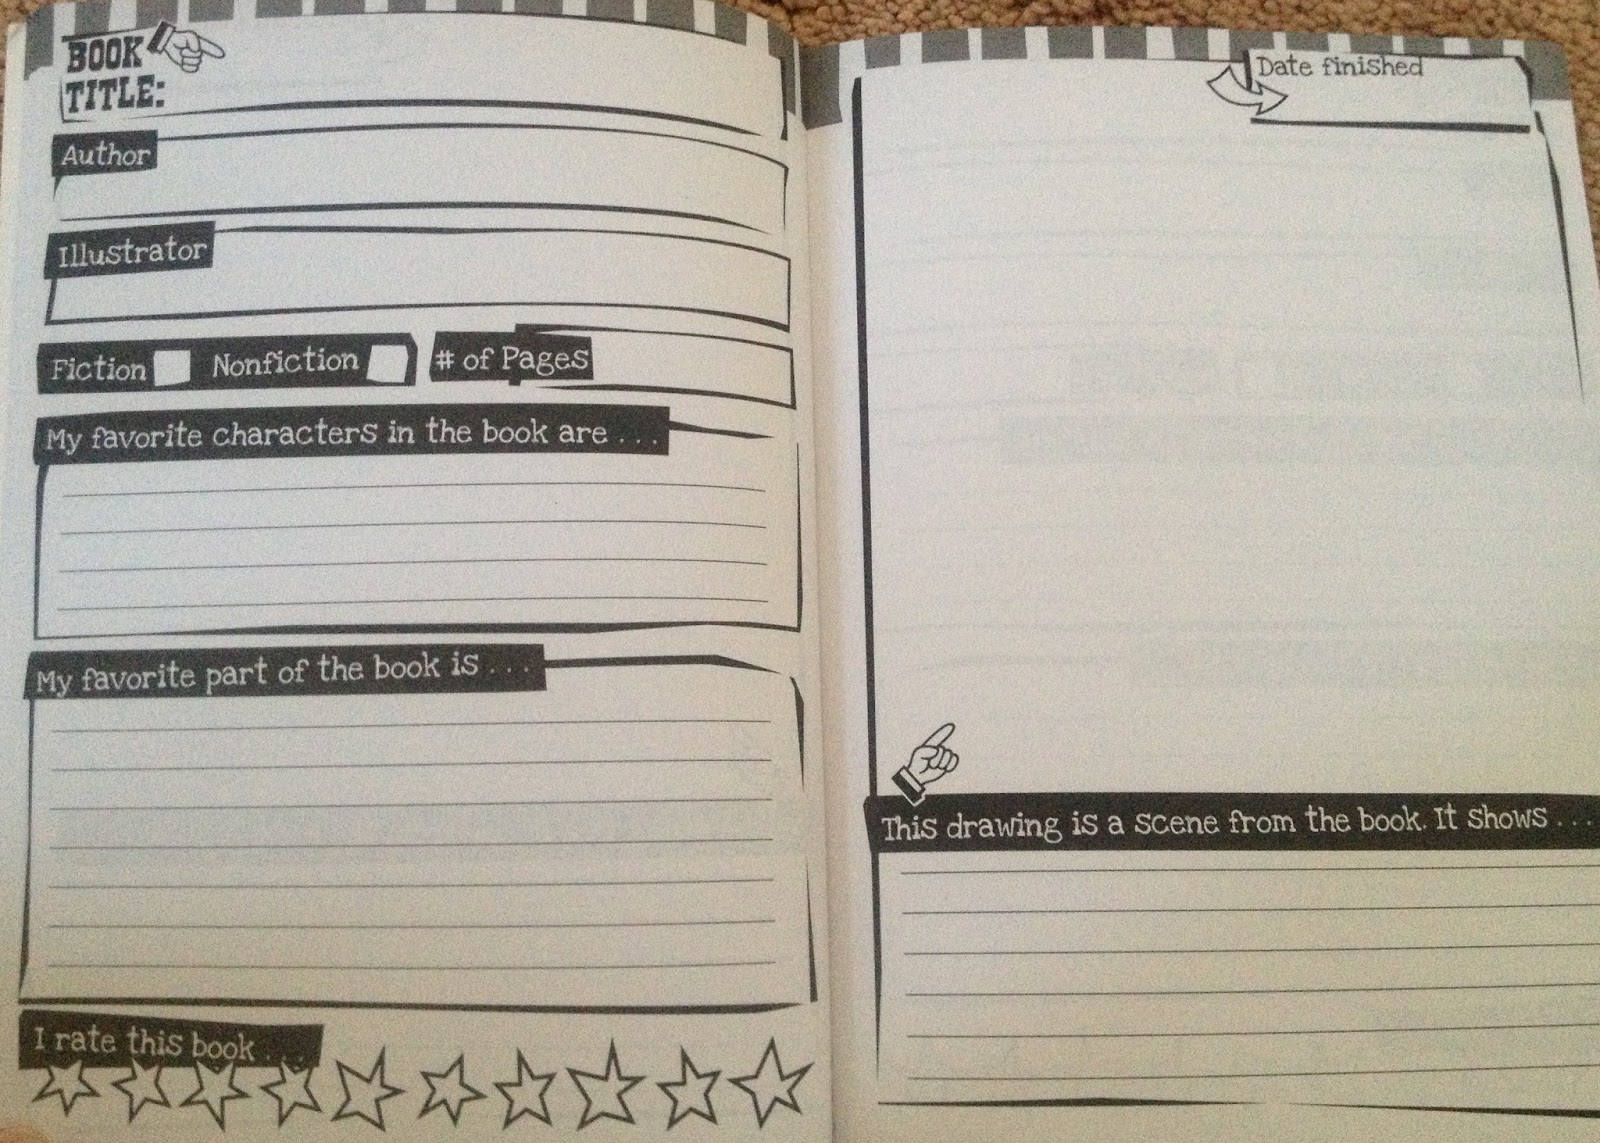 BOOK
TITLE:
Author
Illustrator
Fiction Nonfiction # of Pages
My favorite characters in the book are . . .
My favorite part of the book is . . .
I rate this book . . .
Date finished
This drawing is a scene from the book. It shows . . .